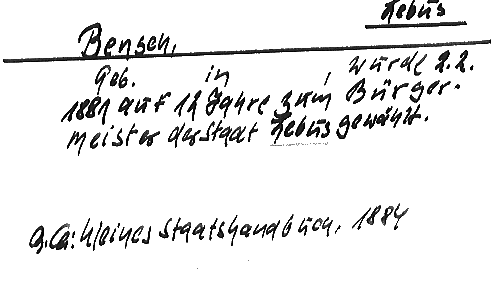 Lebus
Bensch,
Geb. in , wurde 2.2.
1881 auf 12 Jahre zum Bürger-
meister der Stadt Lebus gewählt.
Kleines Staatshandbuch, 1884